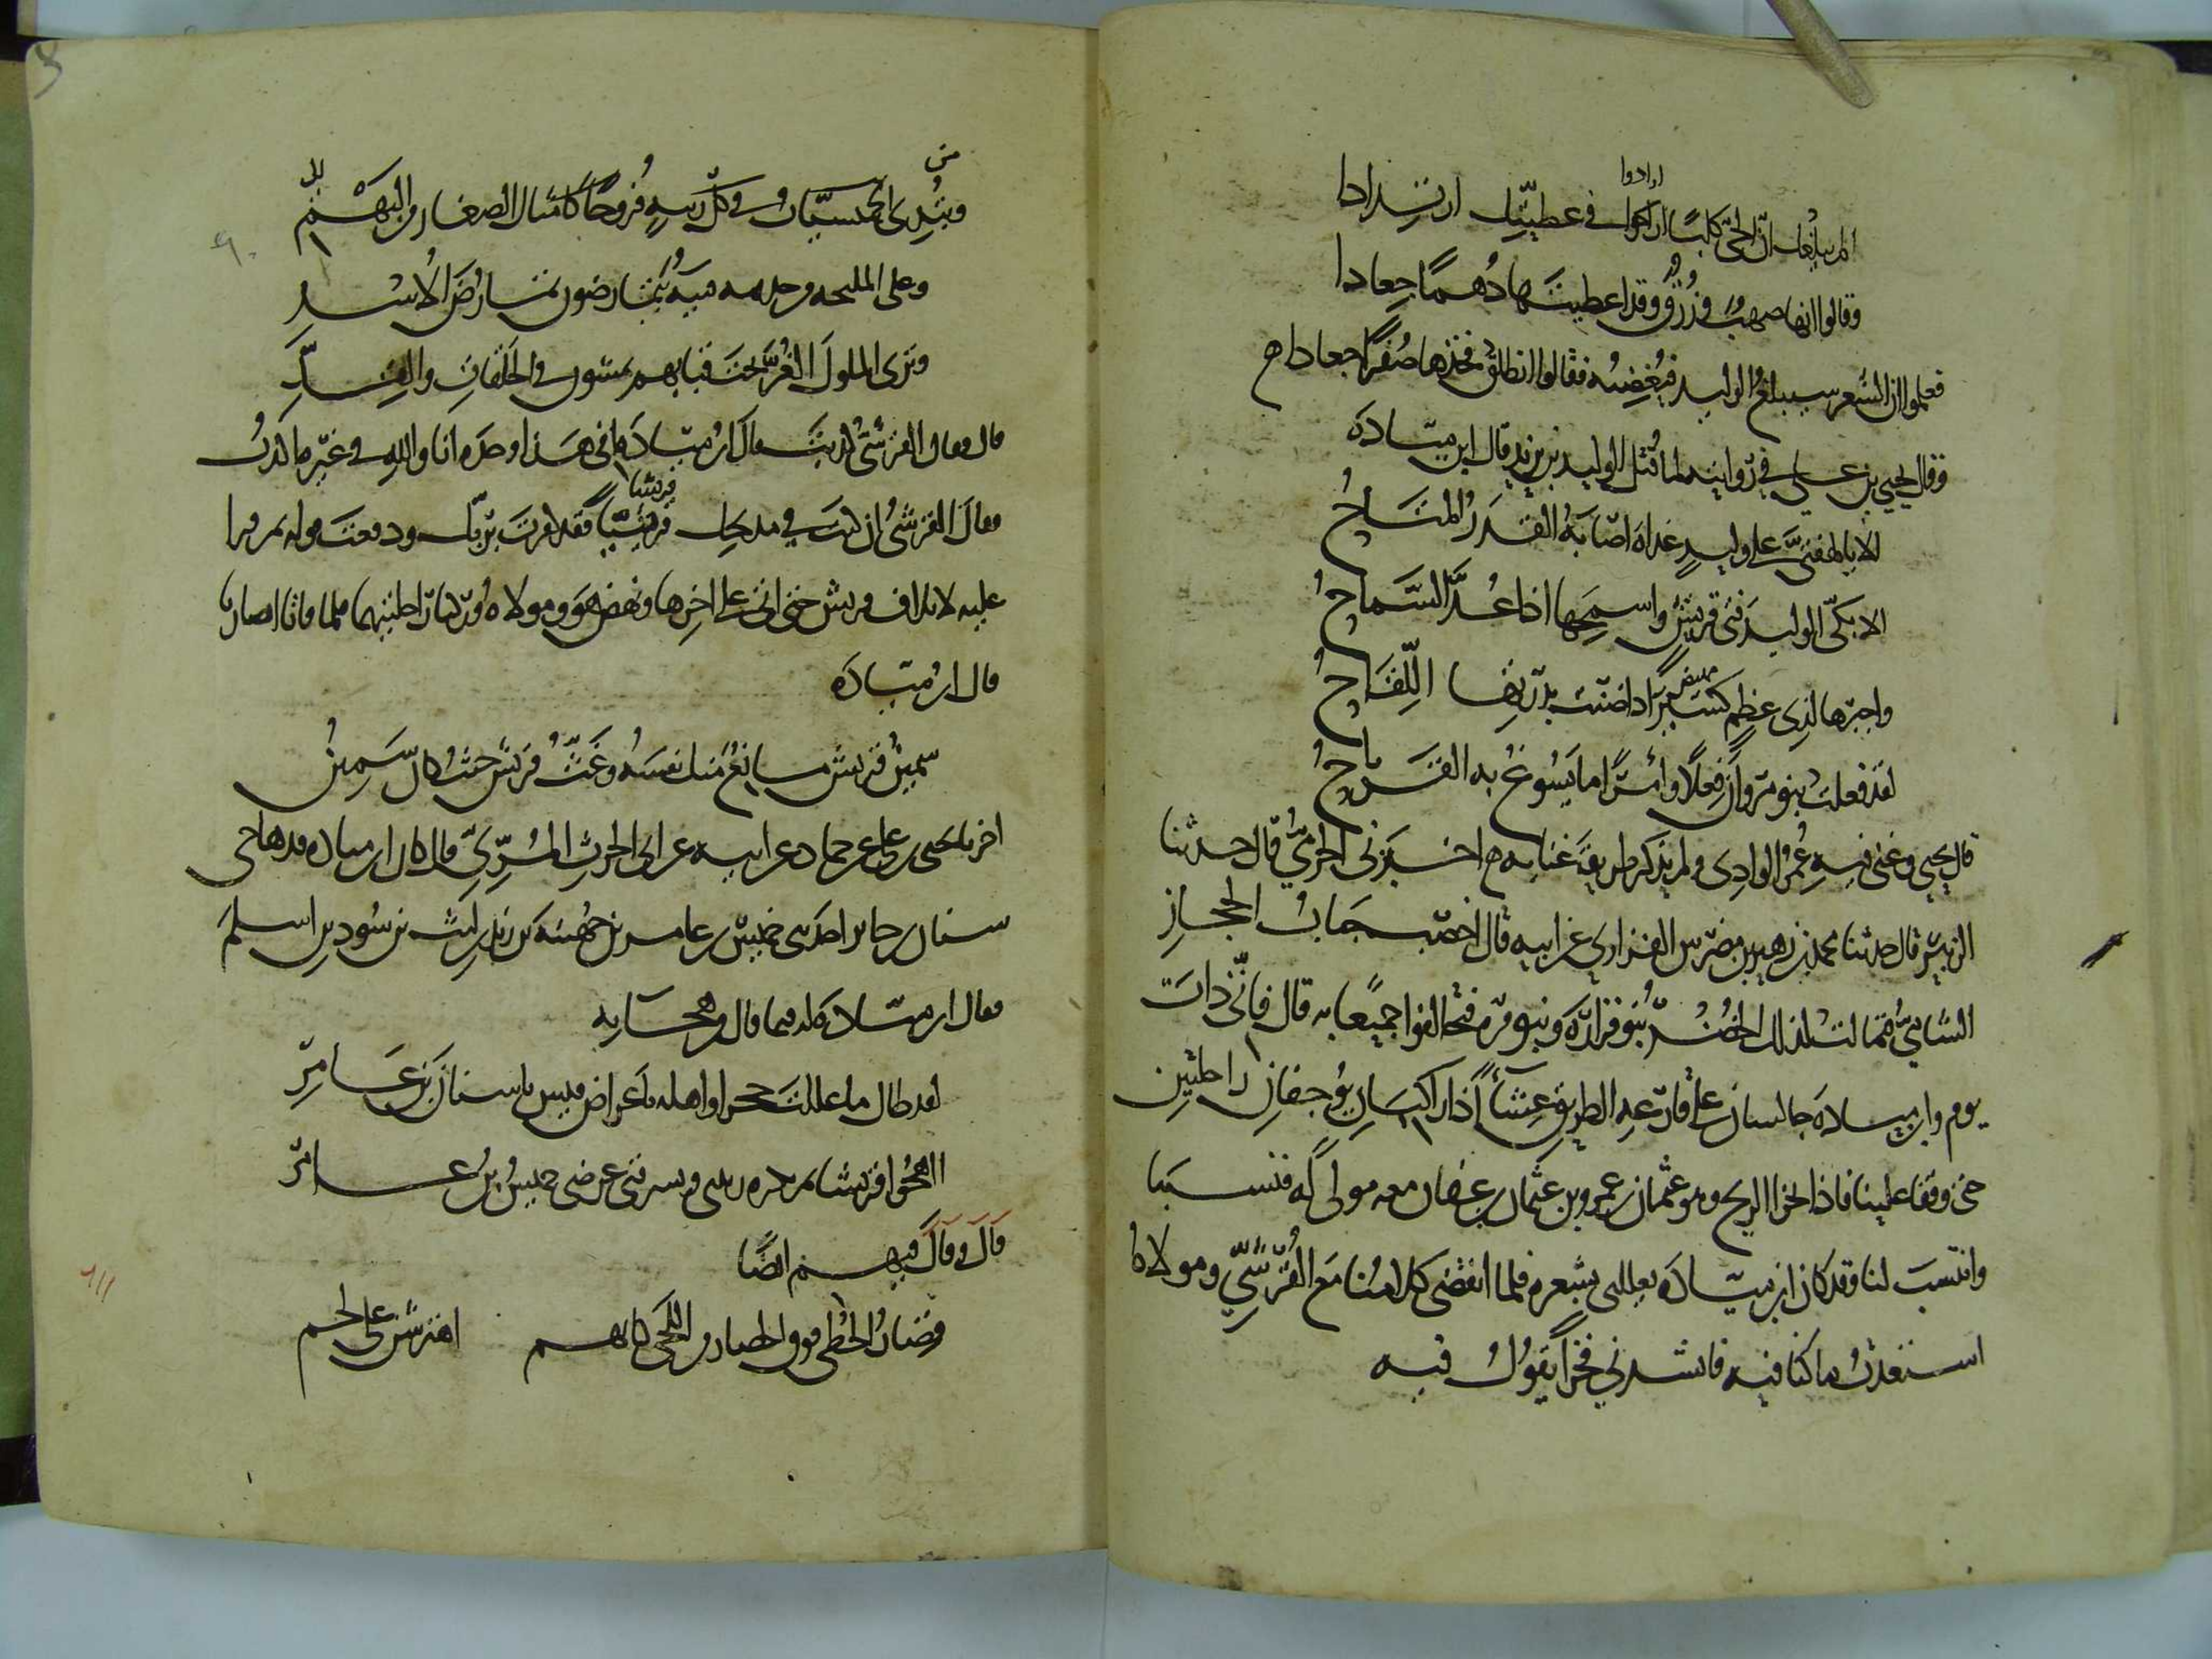 ارادوا
الم يبلغك ان الحي كلبا اراكوا في عطيتك ارتدادا
وقالوا انها صهب وزرق وقد اعطيتها دهما جعادا
فعلموا ان الشعر سيبلغ الوليد فيغضبه فقالوا انطلق فخذها صفرا جعادا ح
وقال يحيى بن علي في روايته لما قتل الوليد بن يزيد قال ابن ميادة
الا يا لهفتي على وليد غداة اصابه القدر المتاح
الا بكي الوليد فتى قريش واسمحها اذا عد السماح
واجبرها لذي عظم كسير اذا ضنت بدرتها اللقاح
مهيض
لقد فعلت بنو مروان فعلا وامرا ما يسوغ به القراح
قال يحيى وغنى فيه عمر الوادي ولم يذكر طريقة غنايه ح اخبرني الحرمي قال حدثنا
الزبير قال حدثنا محمد بن زهير بن مضرس الفزاري عن ابيه قال اخصب جناب الحجاز
الشامي فمالت لذلك الخصب بنو فزارة وبنو مرة فتحالفوا جميعا به قال فاني ذات
يوم وابن ميادة جالسان على قارعة الطريق عشاء اذا راكبان يوجفان راحلتين
حتى وقفا علينا فاذا احدهما الريح وهو عثمان بن عمرو بن عثمان بن عفان معه مولى له فنسبنا
وانتسب لنا وقد كان ابن ميادة يعللني بشعره فلما انقضى كلامنا مع القرشي ومولاه
استعدت ما كنا فيه فانشدني فخرا يقول فيه
من
وعلى المليحة من جذيمة فتية يتمارضون تمارض الاسد
وترى الملوك الغر تحت قبابهم يمشون في الحلقات والقد
قال وقال القرشي كذبت قال ابن ميادة افي هذا وحده انا والله في غيره اكذب
قريشا
فقال القرشي ان كنت في مدحك قريشيا فقد كفرت بربك ودفعت قوله ثم قرا
عليه لايلاف قريش حتى اتى على اخرها ونهض هو ومولاه وركبا راحلتيهما فلما فاتا ابصارنا
قال ابن ميادة
سمين قريش مانع منك نفسه وغث قريش حيث كان سمين
اخبرنا يحيى بن علي عن حماد عن ابيه عن ابي الحرث المري قال كان ابن ميادة قد هاجى
سنان بن جابر احد بني حميس بن عامر بن جهينة بن زيد بن ليث بن سود بن اسلم
فقال ابن ميادة له فيما قال من هجايه
لقد طال ما عللت حجرا واهله باعراض قيس يا سنان بن عامر
ااهجو قريشا ثم تكره ريبتي ويسرقني عرضي حميس بن عامر
قال وقال فيهم ايضا
قصار الخطى فرق الخصى زمر اللحى كانهم